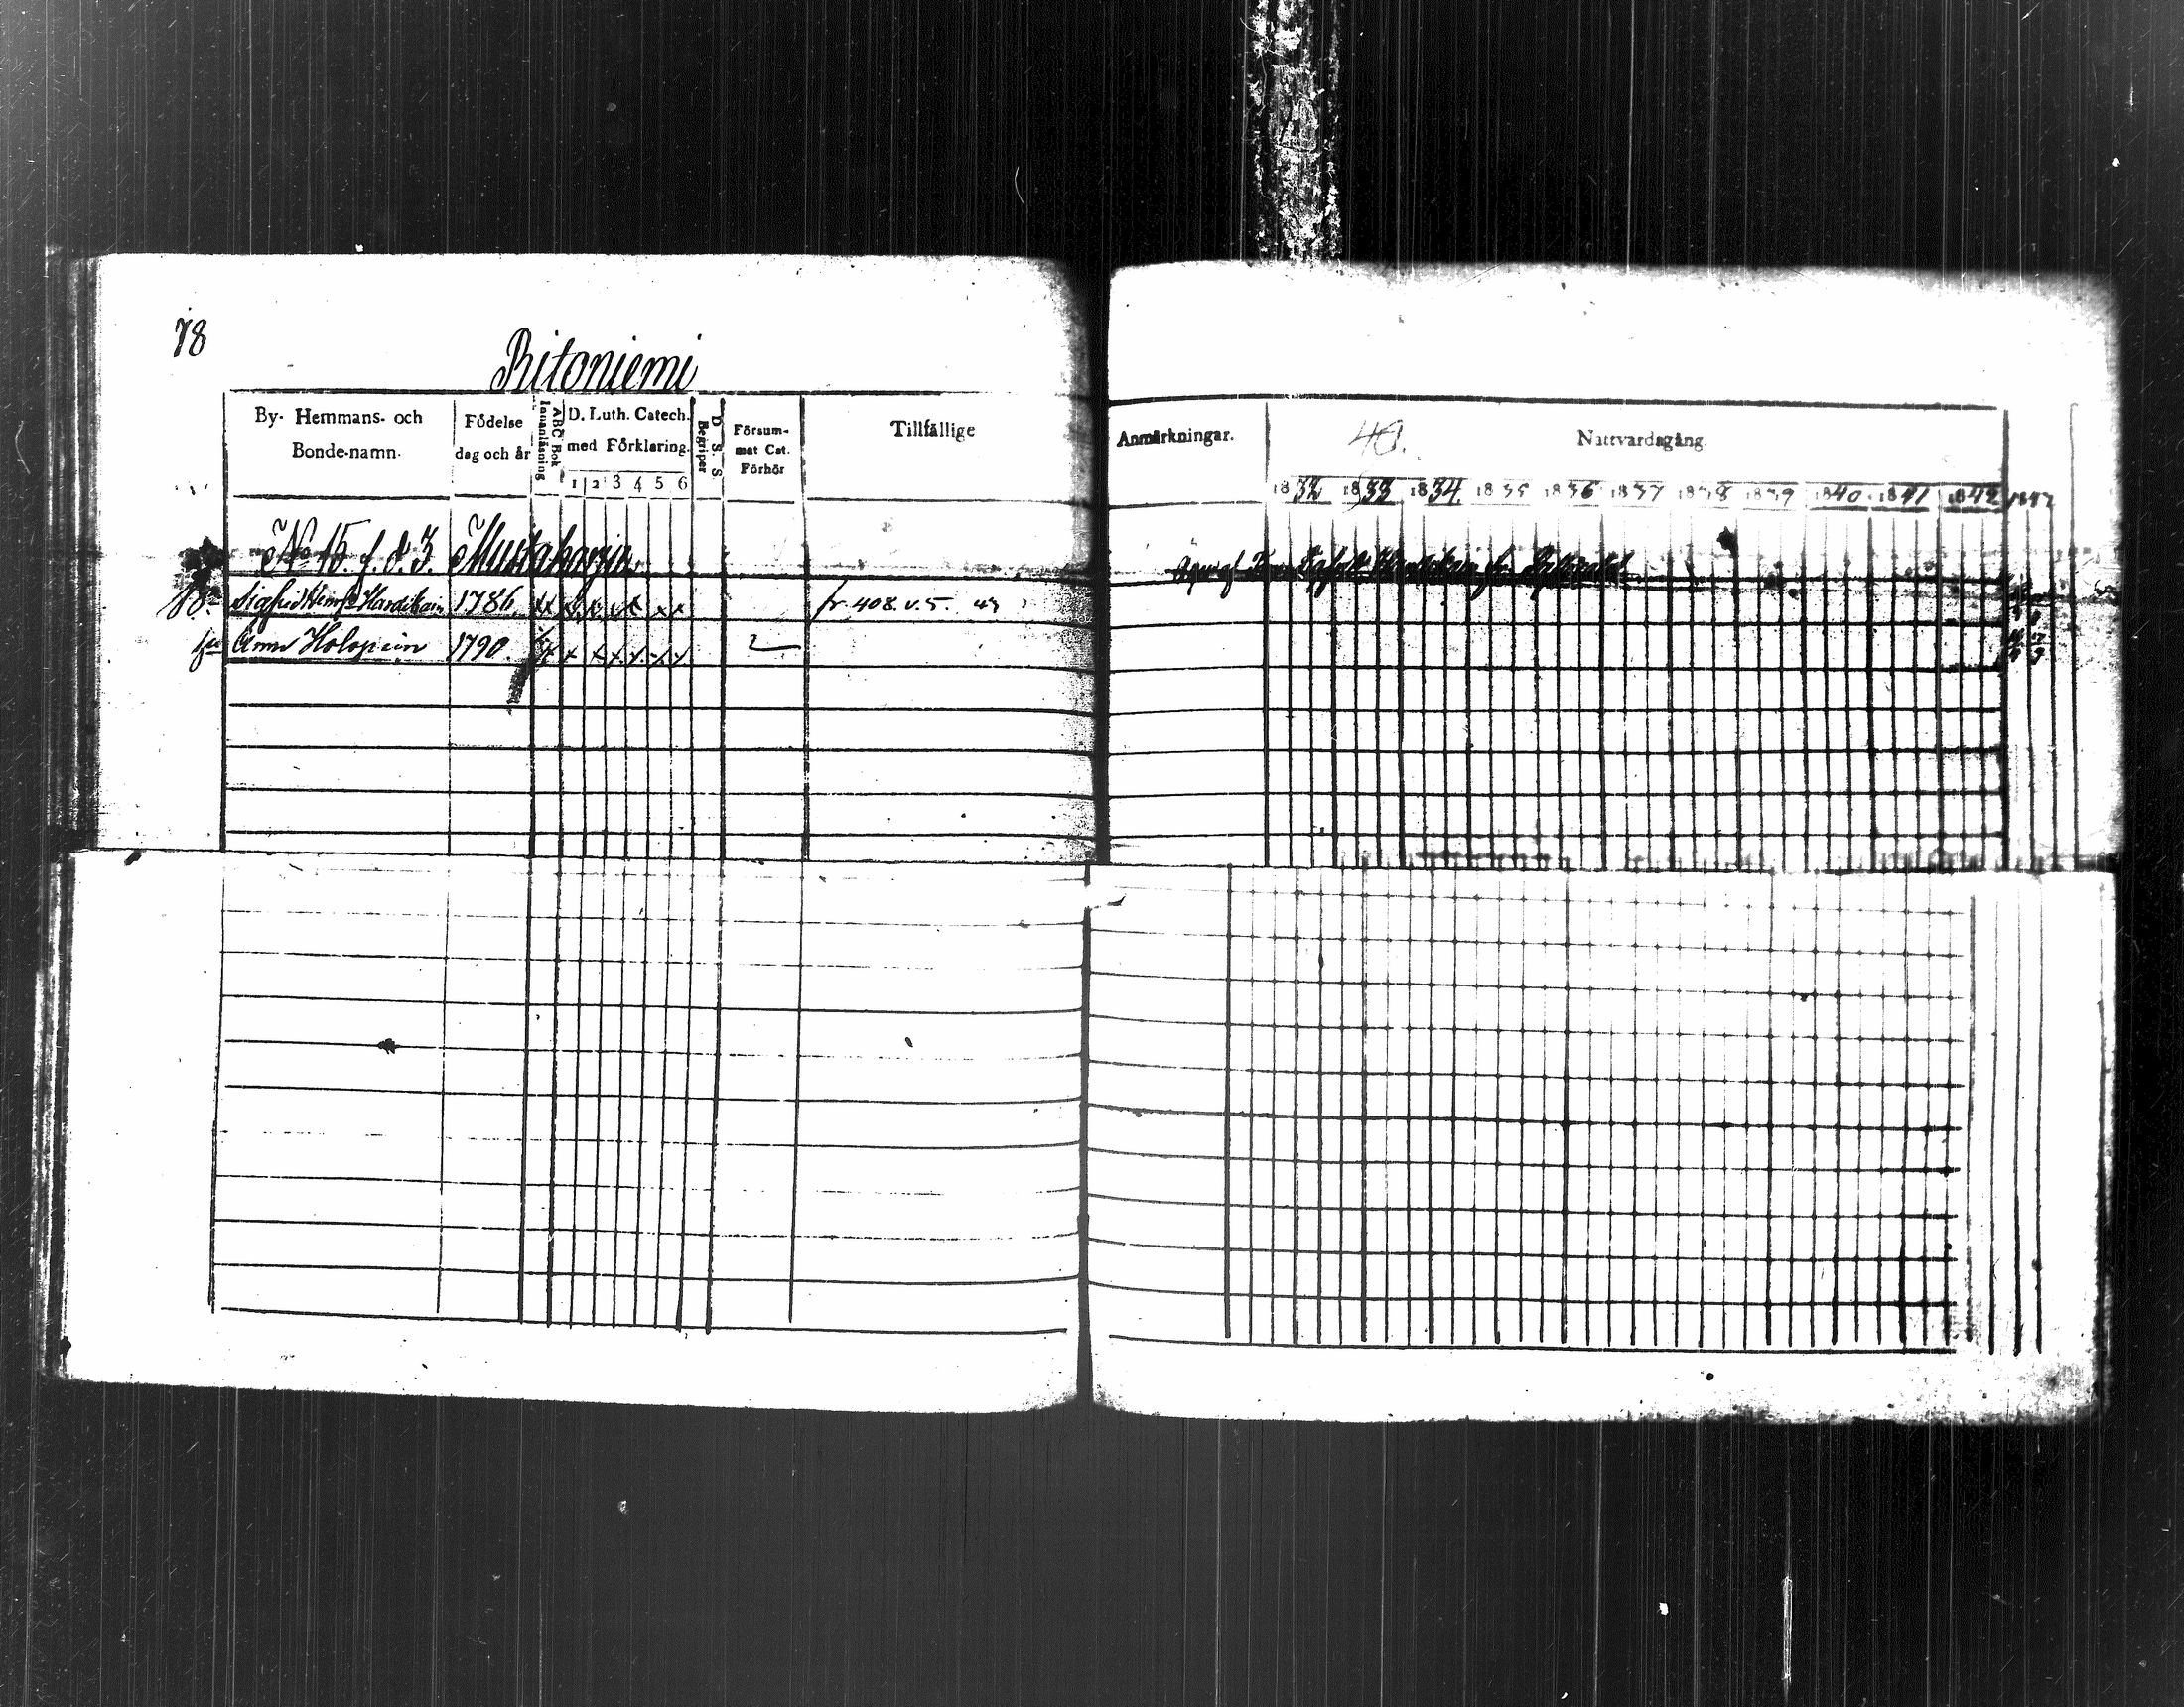 78
Ritoniemi
By- Hemmans- och
Bonde-namn.
Födelse
dag och år
Innanläsning
ABC Bok
D. Luth. Catech.
med Förklaring.
1 2 3 4 5 6
Begriper
D S S
Försum-
mat Cat.
Förhör
Tillfällige
Anmärkningar.
40.
Nattvardsgång.
1832 1833 1834 1835 1836 1837 1838 1839 1840 1841 1842 1843
No 15. f. d. 3. Mustaharju
Sigfrid Hemf: Hardikain 1786 x x x x x x x fr 408. v. 5. 43
hu Anna Holopain 1790. x x x x x x x